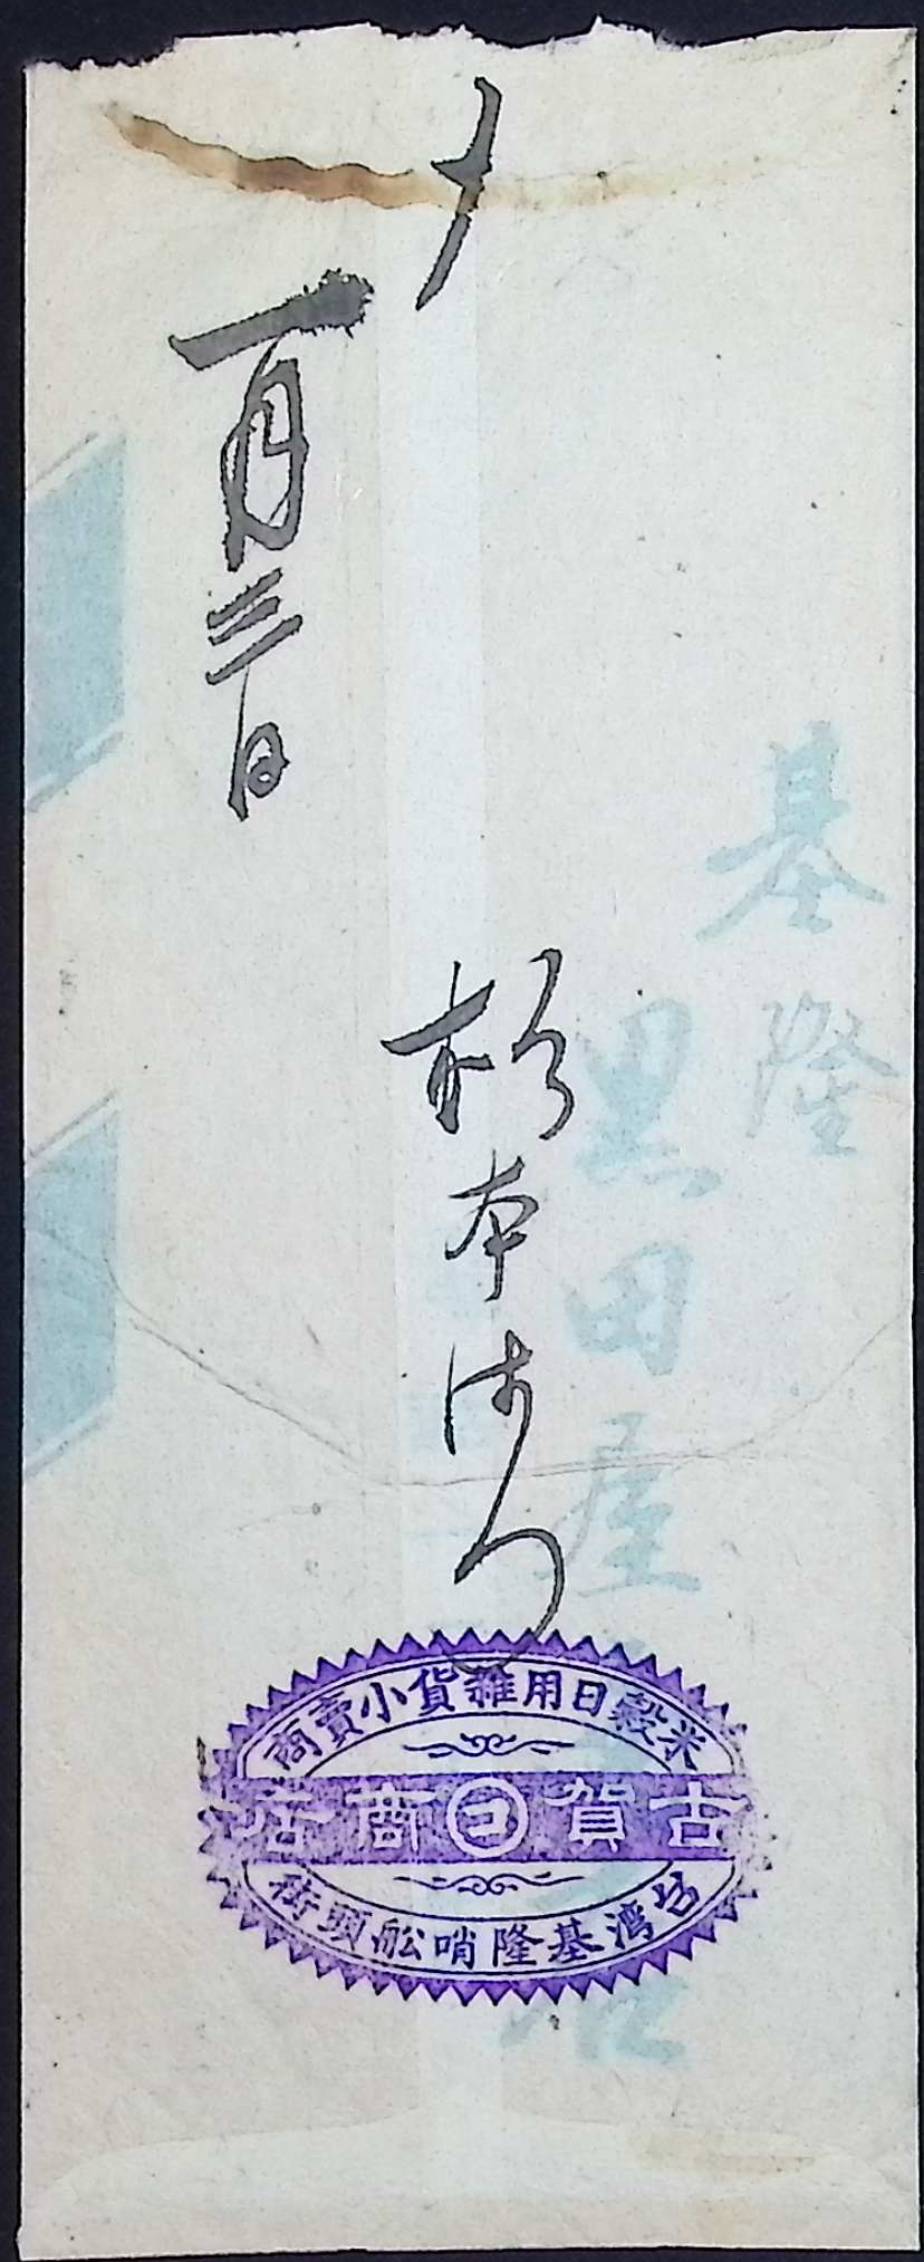 基隆
黒田屋
杉本
一月三日
米穀日用雑貨小賣商
古賀コ商店
台湾基隆哨船頭街